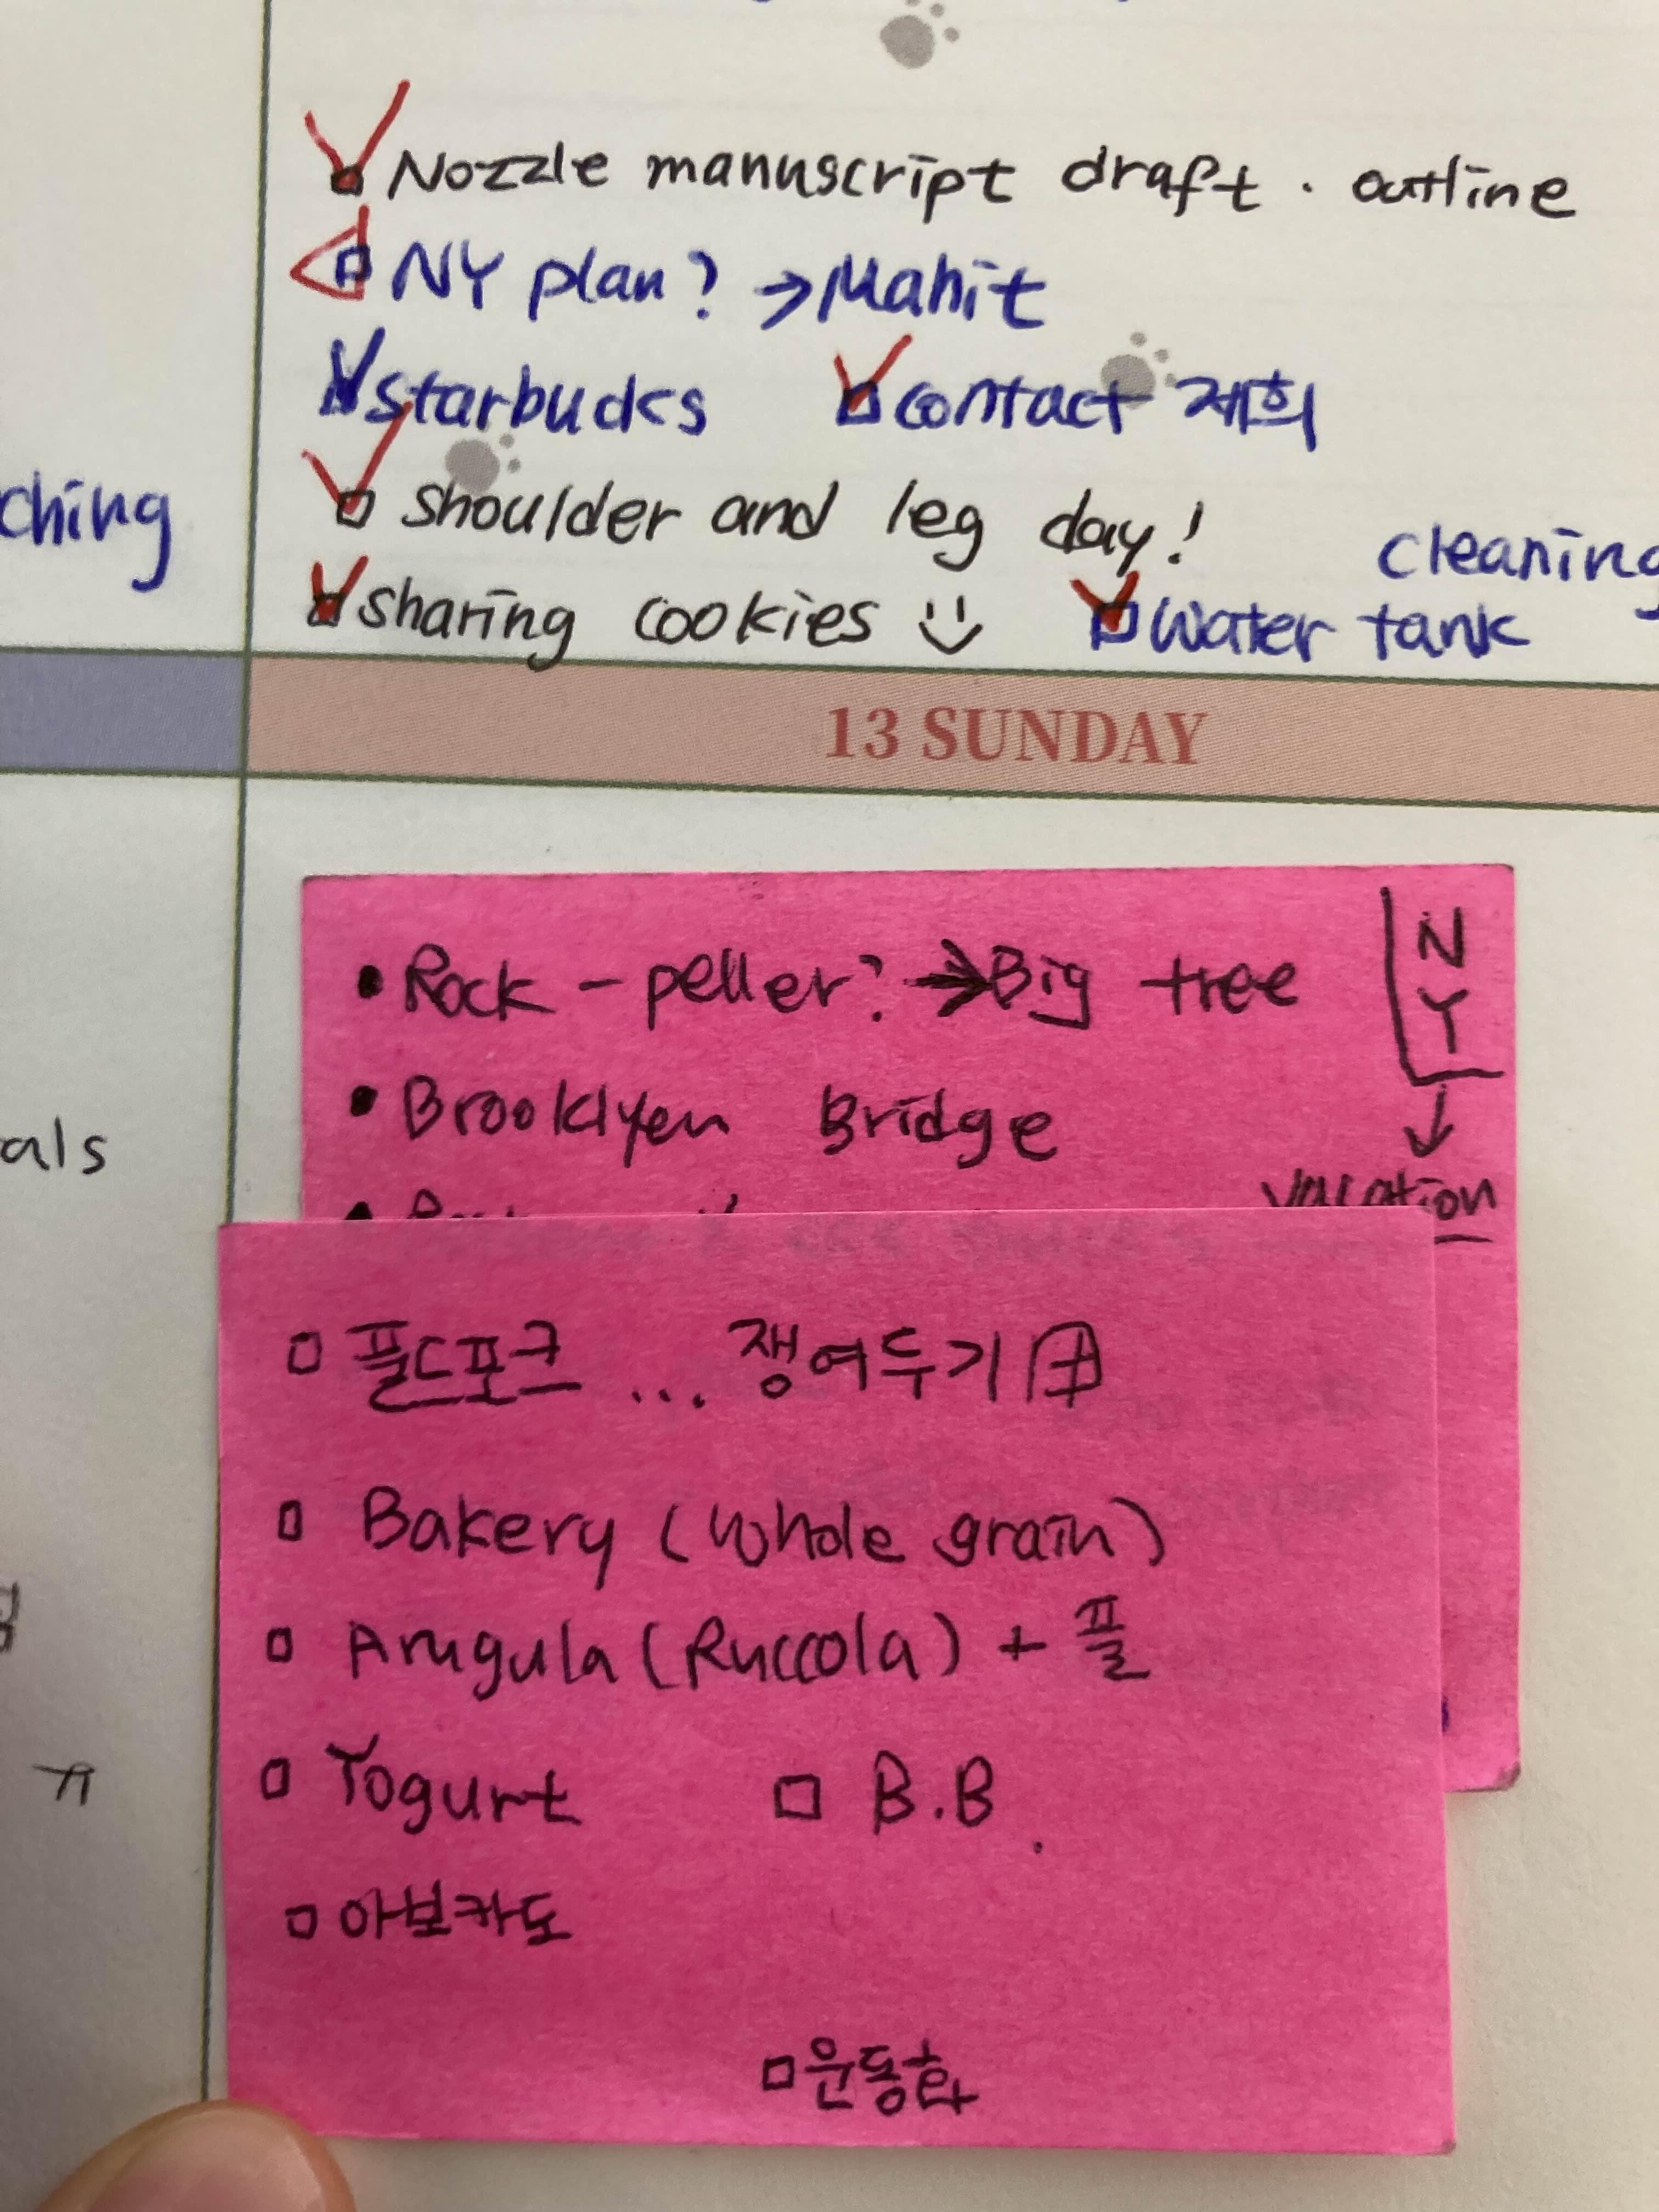 Nozzle manuscript draft. outline
NY plan? →Mahit
starbucks contact 재희
ching
shoulder and leg day!
cleaning
sharing cookies
water tank
13 SUNDAY
• Rock-peller? → Big tree
NY
↓
vacation
• Brooklyen Bridge
als
풀드포크 ... 쟁여두기
Bakery (whole grain)
Arugula (Ruccola) + 풀
Yogurt B.B.
ㄲ
아보카도
운동화